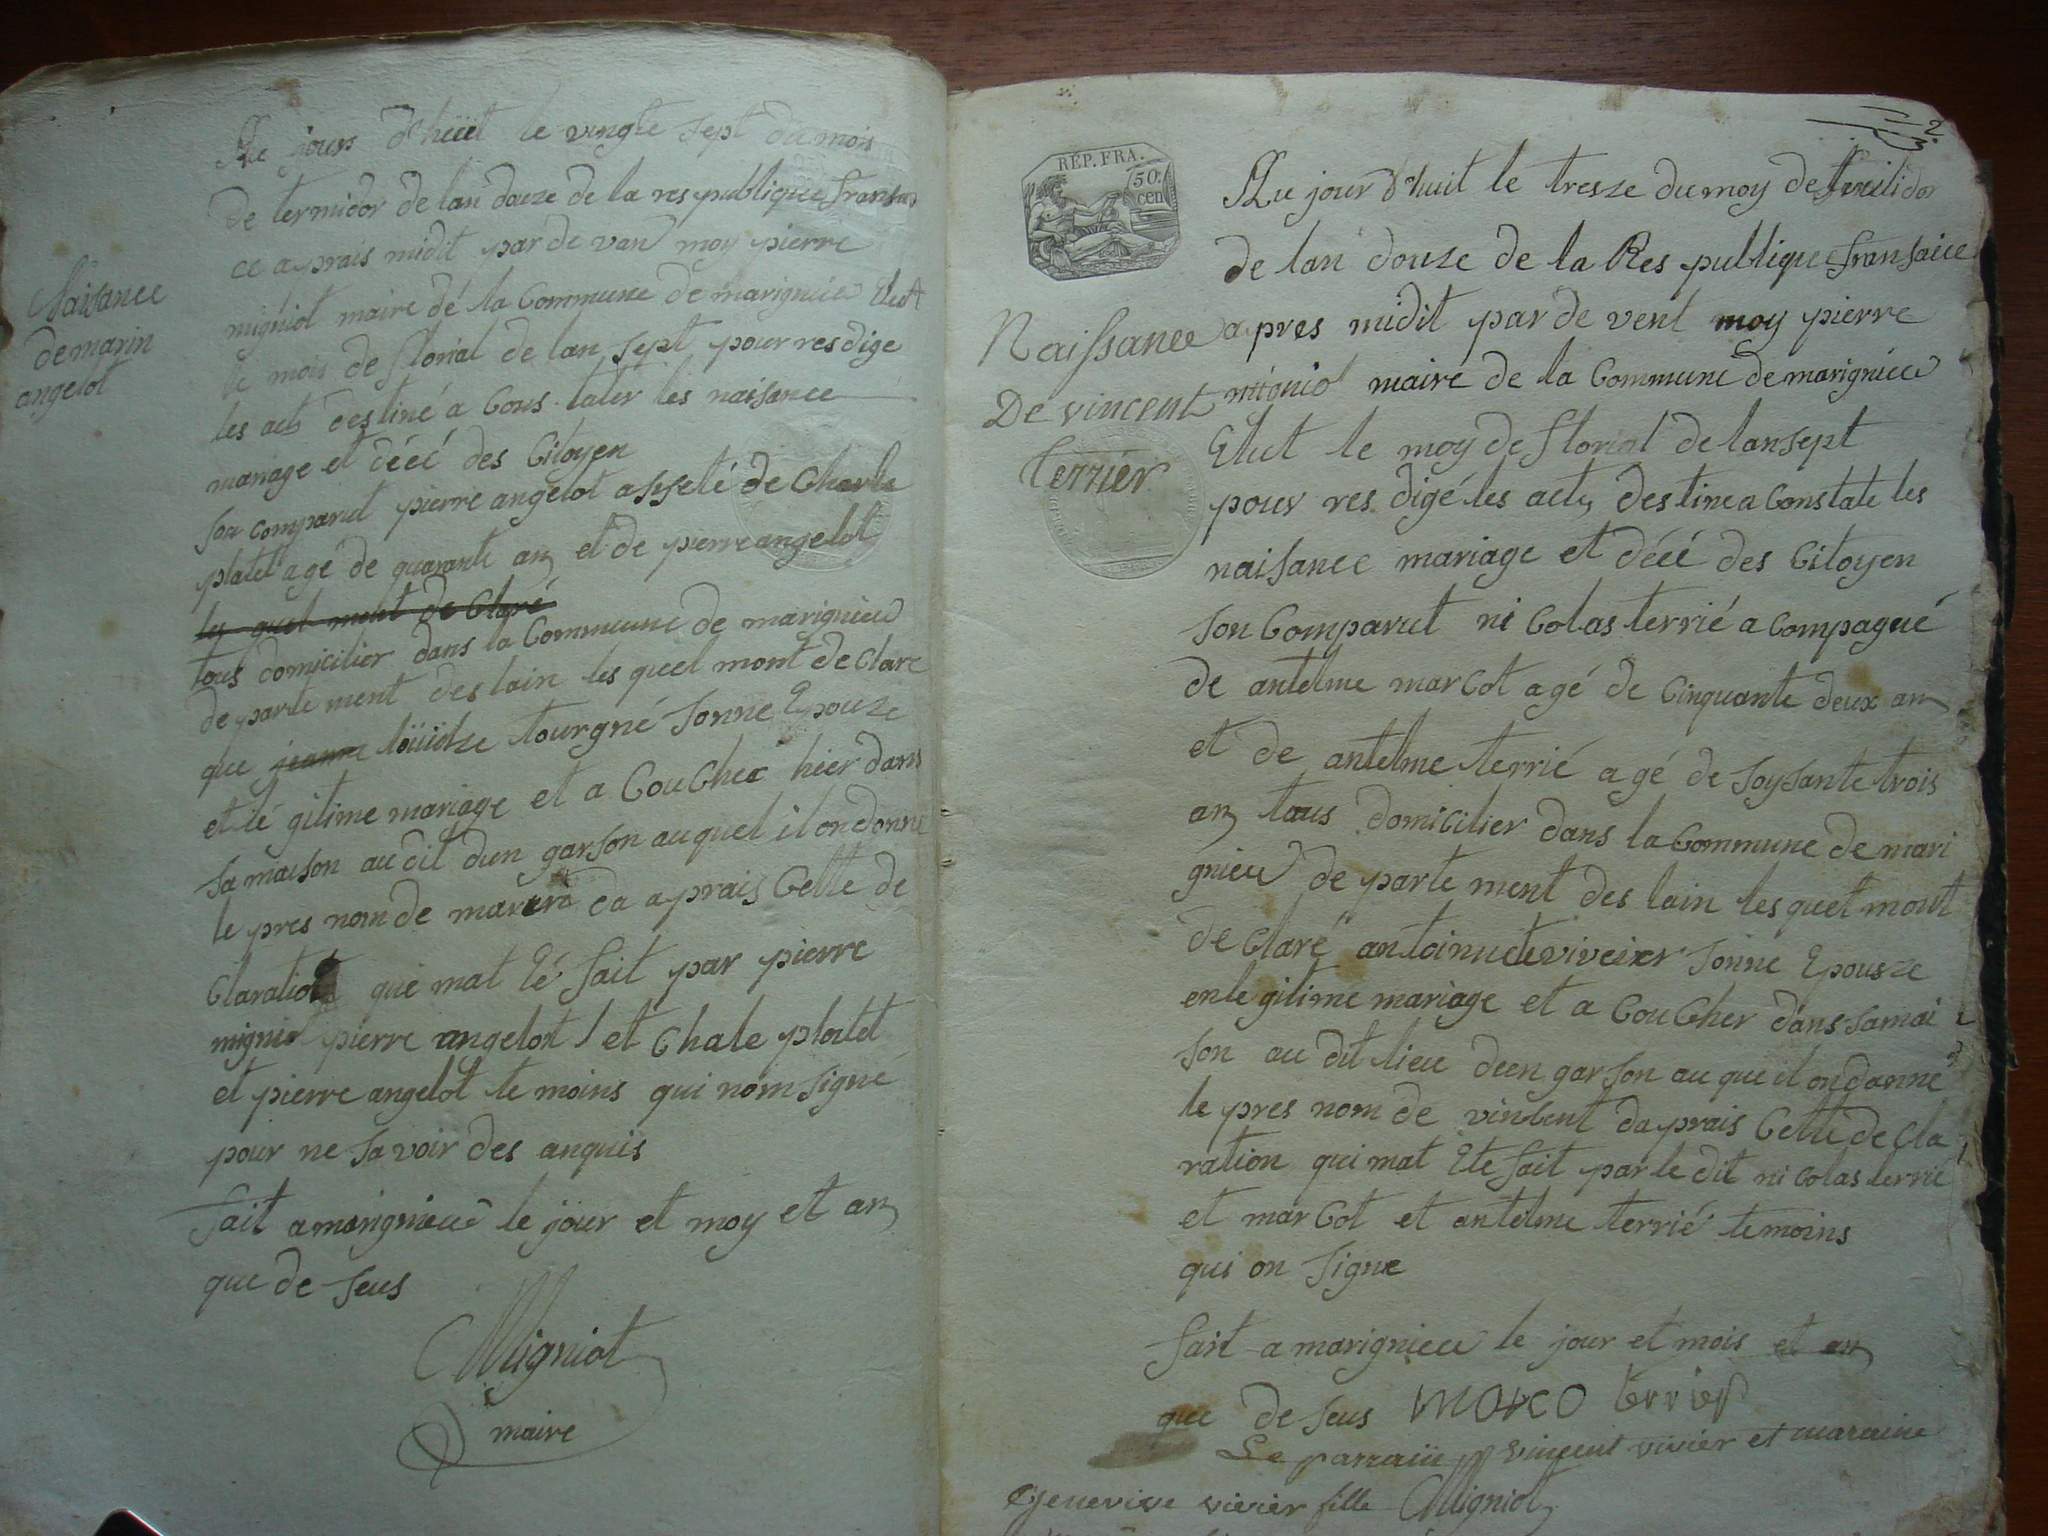 Au jours d'huiit le vingte sept du mois
de termidor de lan douze de la res publique fransai
ce a prais midit par de van moy pierre
migniot maire dé la Commune de marignieu Elut
le mois de florial de lan sept pour res dige
les act destiné a Cons tater les naisance
mariage et décé des Citoyen
son comparut pierre angelot assité de Charle
platet age de quarante an et de pierre angelot
les quel mont de Claré
tous domicilier dans la Commune de marignieu
de parte ment des lain les quel mont de Clare
que jeanne loüidze tourgné sonne Epouze
et lé gitime mariage et a CouCheé hier dans
sa maison au dit dun garson auquel il on donné
le pres nom de marin da aprais Cette de
Claration que mat Eté fait par pierre
migniot pierre angelot / et Chale platet
et pierre angelot te moins qui nom signé
pour ne savoir des anquis
fait a marignieu le jour et moy et an
que de seus
Migniot
maire
Naisance
de marin
angelot
2
RÉP. FRA.
50
cen
Au jour d'huit le tresze du moy de fruitidor
de lan douze de la Res publique fransaice
a pres midit par de vent moy pierre
migniot maire de la Commune de marignieu
Elut le moy de florial de lan sept
pour res digé les act destine a Constate les
naisance mariage et décé des Citoyen
son Comparut ni Colas terrié a Compagné
de antelme marCot agé de Cinquante deux an
et de antelme terrié agé de soysante trois
an tous domicilier dans la Commune de mari
gnieu de parte ment des lain les quel mont
de Claré antoinette viveier sonne Epousze
en le gitime mariage et a CouCher dans sa mai
son au dit lieu deun garson au que il on danné
le pres nom de vinCent da prais Cette de Cla
ration qui mat Ete fait par le dit ni Colas terrié
et marCot et antelme terrié temoins
qui on signe
fait a marignieu le jour et mois et an
que de seus marco terrier
Le parrain vincent vivier et maraine
Genevive vivier fille Migniot
Naissance
De vincent
terrier